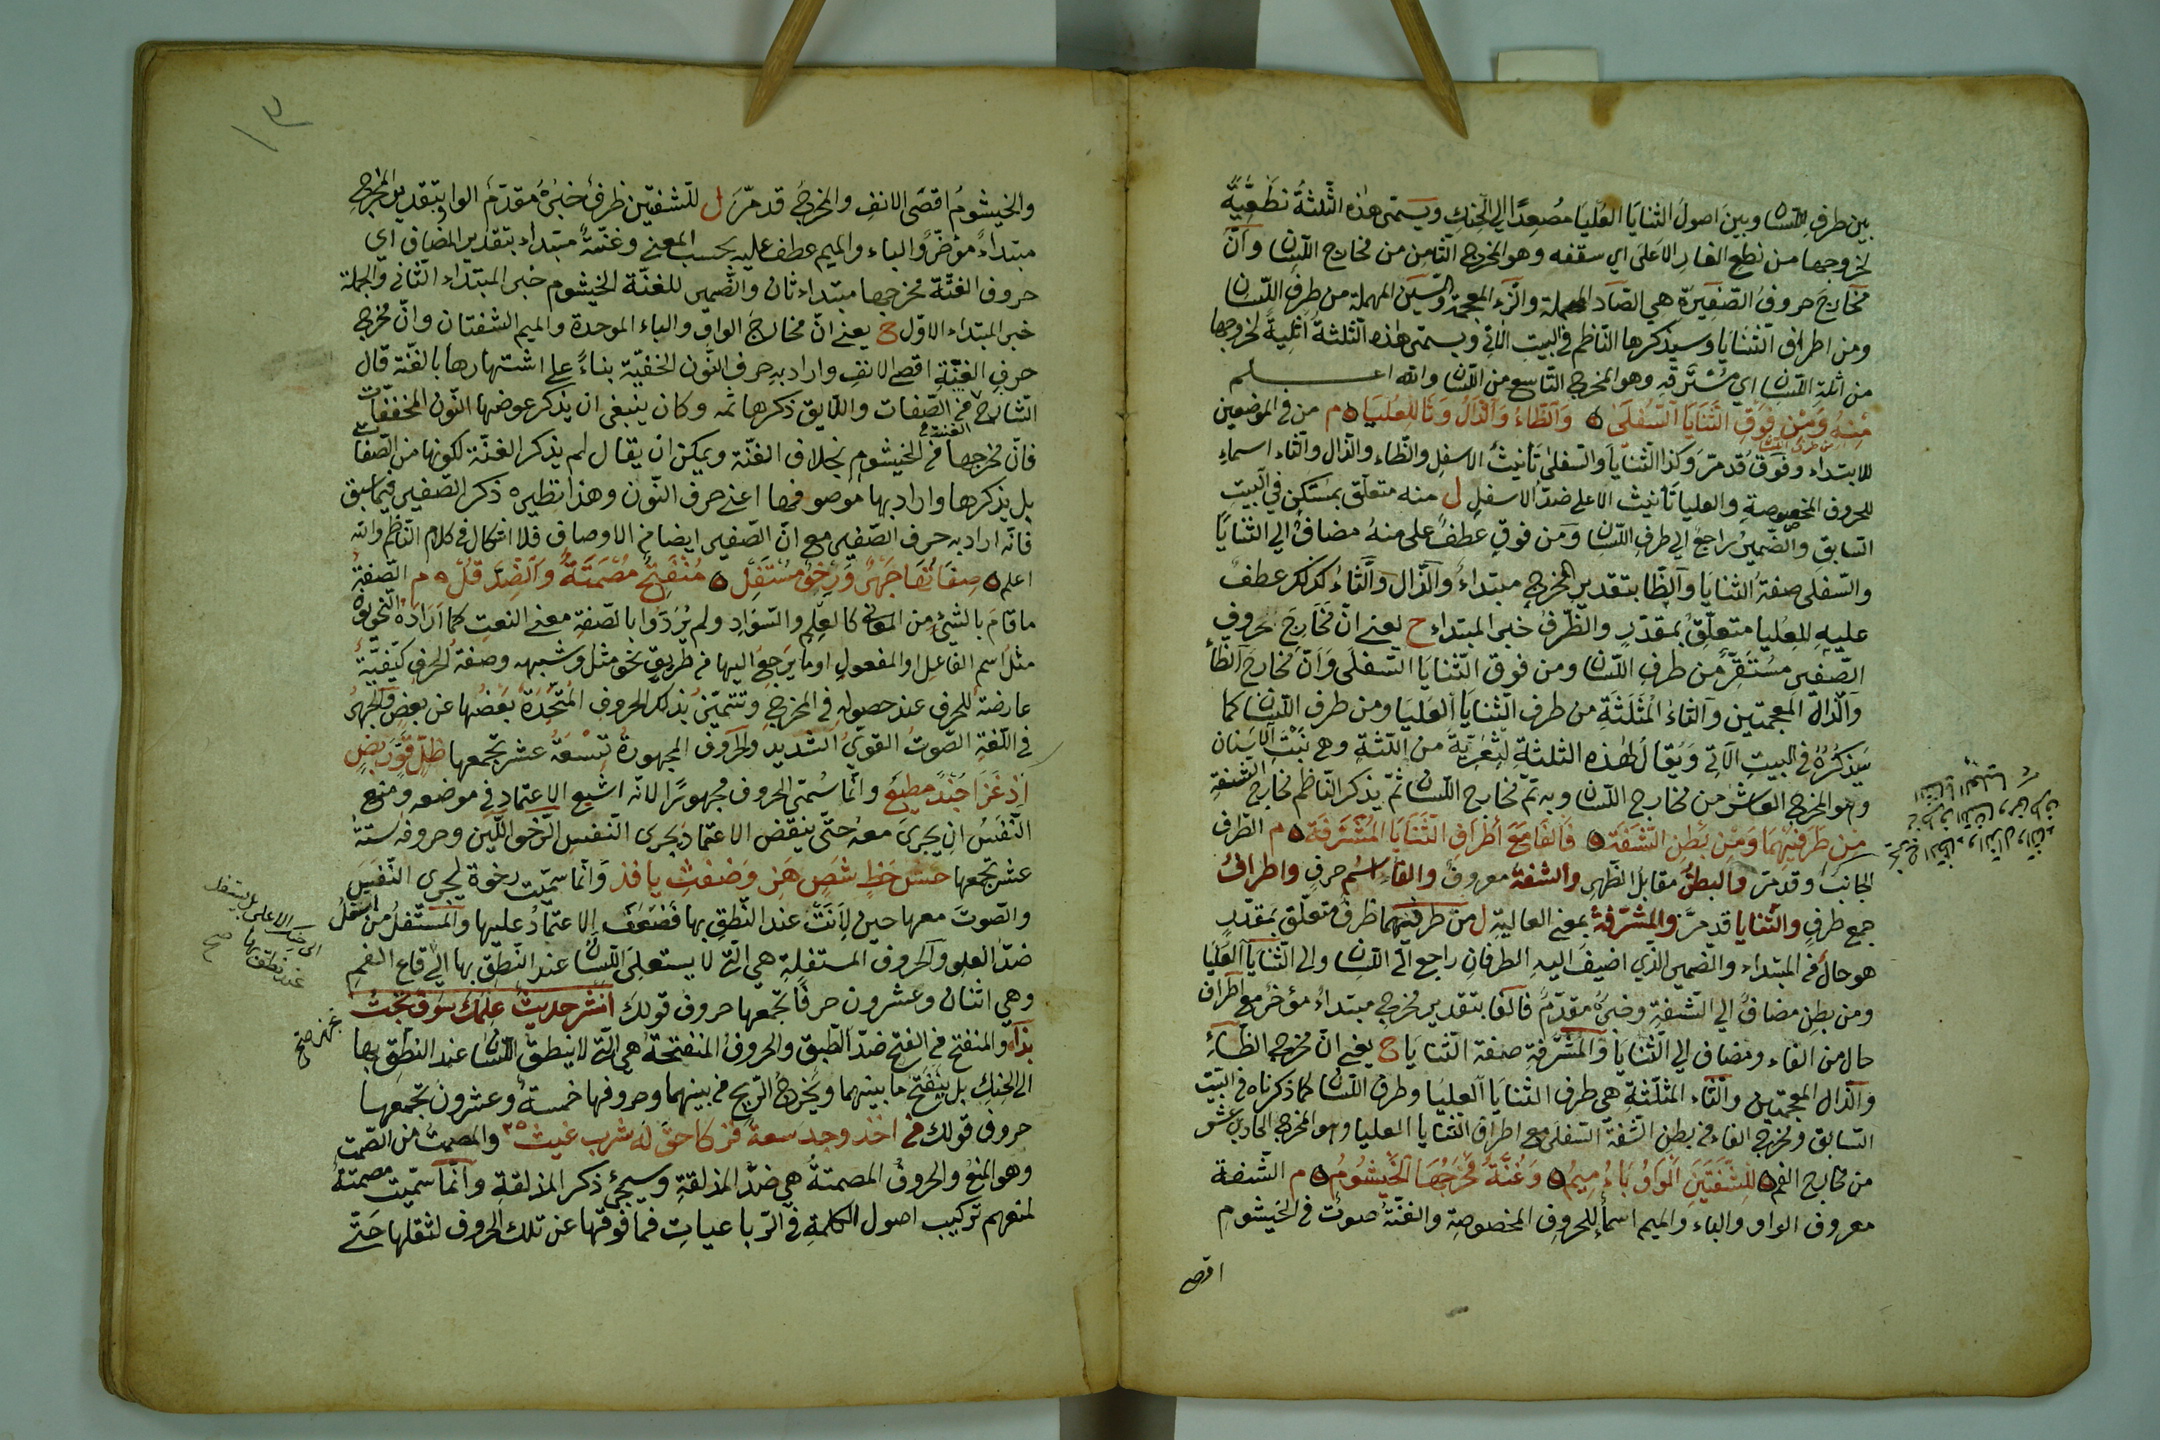 بين طرف اللسان وبين اصول الثنايا العليا مصعدا الي الحنك ويسمى هذه الثلثة نطعية
لخروجها من نطع الغار الاعلى اي سقفه وهو المخرج الثامن من مخارج اللسان وانّ
مخارج حروف الصفيرة هي الصاد المهملة والزاء المعجمة والسين المهملة من طرف اللسان
ومن اطراف الثنايا وسيذكرها الناظم في البيت الآتي ويسمى هذه الثلثة اثلية لخروجها
من اثلة اللسان اي مسترقه وهو المخرج التاسع من اللسان والله اعلم
منه ومن فوق الثنايا السفلى ٥ والظاء والذال وثا للعليا ٥ م من في الموضعين
للابتداء وفوق قد مرّ وكذا الثنايا والسفلى تأنيث الاسفل والظاء والذال والثاء اسماء
للحروف المخصوصة والعليا تأنيث الاعلى ضدّ الاسفل ل منه متعلق بمستكن في البيت
السابق والضمير راجع الي طرف اللسان ومن فوق عطف على منه مضاف الي الثنايا
والسفلى صفة الثنايا والظا بتقدير المخرج مبتداء والذال والثاء كذلك عطف
عليه للعليا متعلق بمقدر والظرف خبر المبتداء ح يعني ان مخارج حروف
الصفير مستقر من طرف اللسان ومن فوق الثنايا السفلى وان مخارج الظاء
والذال المعجمتين والثاء المثلثة من طرف الثنايا العليا ومن طرف اللسان كما
سيذكره في البيت الآتي ويقال لهذه الثلثة لثوية من اللثة وهي نبت الاسنان
وهو المخرج العاشر من مخارج اللسان وبه تمّ مخارج اللسان ثمّ يذكر الناظم مخارج الشفة
من طرفيهما ومن بطن الشفة ٥ فالفا مع اطراف الثنايا المشرفة ٥ م الطرف
الجانب وقد مرّ والبطن مقابل الظهر والشفة معروف والفاء اسم حرف واطراف
جمع طرف والثنايا قد مرّ والمشرفة بمعنى العالية ل من طرفيهما ظرف متعلق بمقدر
هو حال في المبتداء والضمير الذي اضيف اليه الطرفان راجع الي اللسان والي الثنايا العليا
ومن بطن مضاف الي الشفة وخبره مقدم فالفا بتقدير مخرج مبتداء مؤخر مع اطراف
حال من الفاء ومضاف الي الثنايا والمشرفة صفة الثنايا ح يعني انّ مخرج الظاء
والذال المعجمتين والثاء المثلثة هي طرف الثنايا العليا وطرف اللسان كما ذكرناه في البيت
السابق ومخرج الفاء في بطن الشفة السفلى مع اطراف الثنايا العليا وهو المخرج الحادي عشر
من مخارج الفم ٥ للشفتين الواو باء ميم ٥ وغنة مخرجها الخيشوم ٥ م الشفة
معروف الواو والباء والميم اسماء للحروف المخصوصة والغنة صوت في الخيشوم
اقصى
والخيشوم اقصى الانف والمخرج قد مرّ ل للشفتين ظرف خبره مقدم الواو بتقدير المخرج
مبتداء مؤخر والباء والميم عطف عليه بحسب المعنى وغنة مبتداء بتقدير المضاف اي
حروف الغنة مخرجها مبتداء ثان والضمير للغنة الخيشوم خبر المبتداء الثاني والجملة
خبر المبتداء الاول ح يعني انّ مخارج الواو والباء الموحدة والميم الشفتان وانّ مخرج
حرف الغنة اقصى الانف واراد به حرف النون الخفية بناء على اشتهارها بالغنة قال
الشارح في الصفات واللايق ذكرها ثمه وكان ينبغي ان يذكر عوضها النون المخففات
فانّ مخرجها في الخيشوم بخلاف الغنة ويمكن ان يقال لم يذكر الغنة لكونها من الصفات
بل يذكرها واراد بها موصوفها اعني حرف النون وهذا نظيره ذكر الصفير فيما سبق
فانه اراد به حرف الصفير مع انّ الصفير ايضا من الاوصاف فلا اشكال في كلام الناظم والله
اعلم ٥ صفاتها جهر ورخو مستفل ٥ منفتح مصمتة والضد قل ٥ م الصفة
ما قام بالشئ من المعاني كالعلم والسواد ولم يردوا بالصفة معنى النعت كما اراده النحويون
مثل اسم الفاعل او المفعول او ما يرجع اليها من طريق نحو مثل وشبهه وصفة الحرف كيفية
عارضة للحرف عند حصوله في المخرج وتتميز بذلك الحروف المتحدة بعضها عن بعض والجهر
في اللغة الصوت القوي الشديد والحروف المجهورة تسعة عشر تجمعها ظل قو ربض
اذ غزا جند مطيع وانما سمى الحروف مجهورا لانه اشبع الاعتماد في موضعه ومنع
النفس ان يجرى معه حتى ينقض الاعتماد بجرى النفس الرخو اللين وحروفه ستة
عشر تجمعها حسن خط شص هز وضغث يا فذ وانما سميت رخوة لجرى النفس
والصوت معها حين لانت عند النطق بها فضعف الاعتماد عليها والمستفل من اسفل
ضدّ العلو والحروف المستفلة هي التي لا يستعلى اللسان عند النطق بها الي قاع الفم
وهي اثنان وعشرون حرفا تجمعها حروف قولك انشر حديث علمك سوف تجث
بذا والمنفتح في الفتح ضدّ الطبق والحروف المنفتحة هي التي لا ينطبق اللسان عند النطق بها
الي الحنك بل ينفتح ما بينهما ويخرج الريح من بينهما وحروفها خمسة وعشرون تجمعها
حروف قولك من اخذ وجد سعة فزكا حق له شرب غيث ٢٥ والمصمت من الصمت
وهو المنع والحروف المصمتة هي ضدّ المذلقة وسيجئ ذكر المذلقة وانما سميت مصمتة
لمنعهم تركيب اصول الكلمة في الرباعيات فما فوقها عن تلك الحروف لثقلها حتى
الى حنك الاعلى بل يستفل
عند نطق بها
صح